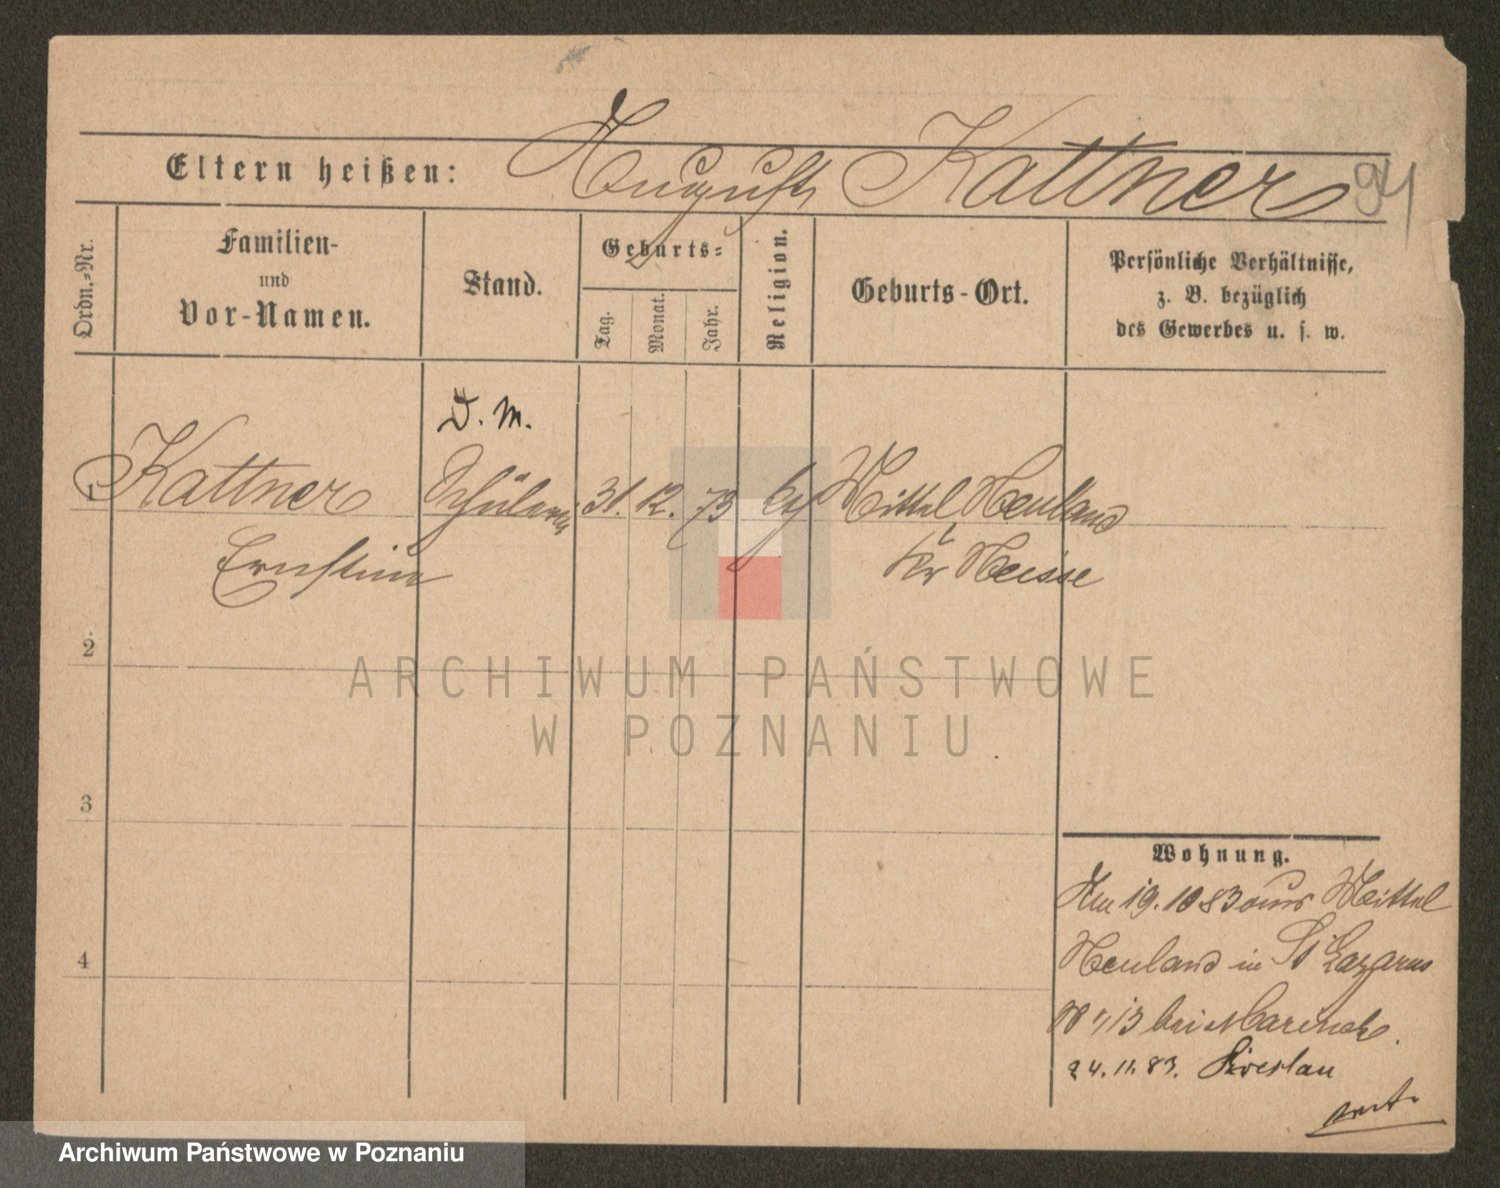 Eltern heißen: August Kattner
94
Ordn.-Nr.
Familien-
und
Vor-Namen.
Stand.
Geburts-
Tag.
Monat.
Jahr.
Religion.
Geburts-Ort.
Persönliche Verhältnisse,
z. B. bezüglich
des Gewerbes u. s. w.
D. M.
1 Kattner Schülerin 31. 12. 73 Mittel Neuland
Ernstine Kr Neisse
2
3
4
ARCHIWUM PAŃSTWOWE
W POZNANIU
Wohnung.
Am 19.10 83 aus Mittel
Neuland in St Lazarus
N 13 bei
24.11.83. Breslau
Archiwum Państwowe w Poznaniu